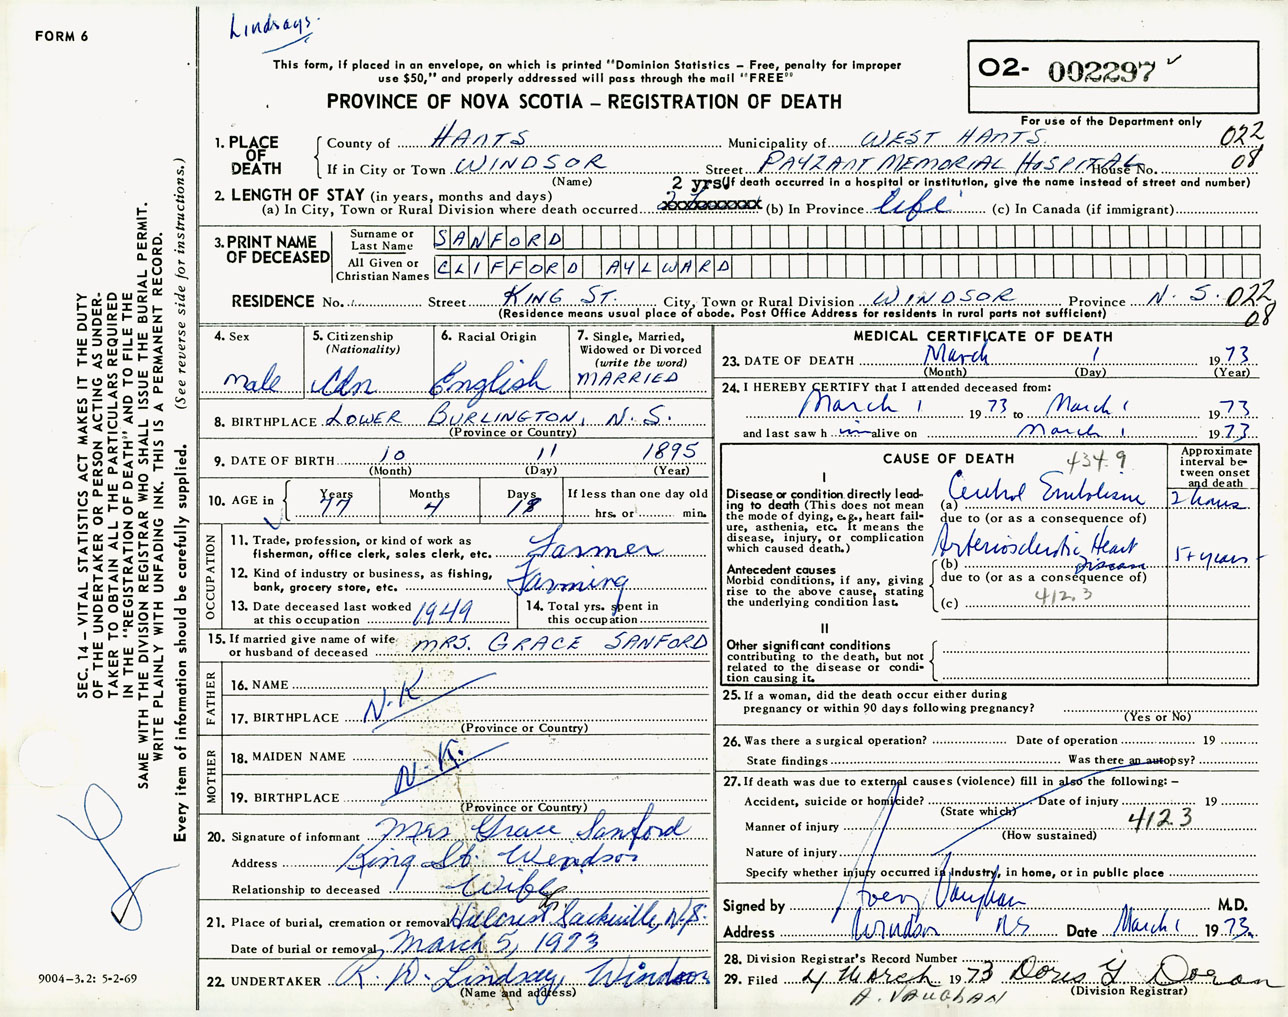 FORM 6
Lindsays.
This form, if placed in an envelope, on which is printed "Dominion Statistics – Free, penalty for improper
use $50," and properly addressed will pass through the mail "FREE"
PROVINCE OF NOVA SCOTIA – REGISTRATION OF DEATH
02- 002297
For use of the Department only
SEC. 14 – VITAL STATISTICS ACT MAKES IT THE DUTY
OF THE UNDERTAKER OR PERSON ACTING AS UNDER-
TAKER TO OBTAIN ALL THE PARTICULARS REQUIRED
IN THE "REGISTRATION OF DEATH" AND TO FILE THE
SAME WITH THE DIVISION REGISTRAR WHO SHALL ISSUE THE BURIAL PERMIT.
WRITE PLAINLY WITH UNFADING INK. THIS IS A PERMANENT RECORD.
Every item of information should be carefully supplied. (See reverse side for instructions.)
1. PLACE OF DEATH
County of HANTS Municipality of WEST HANTS. 022
If in City or Town WINDSOR Street PAYZANT MEMORIAL HOSPITAL House No. 08
(Name) (If death occurred in a hospital or institution, give the name instead of street and number)
2. LENGTH OF STAY (in years, months and days) 2 yrs
(a) In City, Town or Rural Division where death occurred xxxxxxxxxx (b) In Province life (c) In Canada (if immigrant)
3. PRINT NAME OF DECEASED
Surname or Last Name SANFORD
All Given or Christian Names CLIFFORD AYLWARD
RESIDENCE No. Street KING ST. City, Town or Rural Division WINDSOR Province N.S. 022
(Residence means usual place of abode. Post Office Address for residents in rural parts not sufficient) 08
4. Sex Male
5. Citizenship (Nationality) Cdn
6. Racial Origin English
7. Single, Married, Widowed or Divorced (write the word) MARRIED
8. BIRTHPLACE LOWER BURLINGTON, N.S.
(Province or Country)
9. DATE OF BIRTH 10 11 1895
(Month) (Day) (Year)
10. AGE in Years 77 Months 4 Days 18 If less than one day old
hrs. or min.
OCCUPATION
11. Trade, profession, or kind of work as
fisherman, office clerk, sales clerk, etc. Farmer
12. Kind of industry or business, as fishing,
bank, grocery store, etc. Farming
13. Date deceased last worked
at this occupation 1949
14. Total yrs. spent in
this occupation
15. If married give name of wife
or husband of deceased MRS. GRACE SANFORD
FATHER
16. NAME
N.K
17. BIRTHPLACE
(Province or Country)
MOTHER
18. MAIDEN NAME
N.K.
19. BIRTHPLACE
(Province or Country)
20. Signature of informant Mrs Grace Sanford
Address King St. Windsor
Relationship to deceased Wife
21. Place of burial, cremation or removal Hillcrest Sackville, N.S.
Date of burial or removal March 5, 1973
22. UNDERTAKER R. D. Lindsay, Windsor
(Name and address)
9004–3.2: 5-2-69
MEDICAL CERTIFICATE OF DEATH
23. DATE OF DEATH March 1 1973
(Month) (Day) (Year)
24. I HEREBY CERTIFY that I attended deceased from:
March 1 1973 to March 1 1973
and last saw h im alive on March 1 1973
CAUSE OF DEATH 434.9
Approximate interval between onset and death
I
Disease or condition directly lead-
ing to death (This does not mean
the mode of dying, e.g., heart fail-
ure, asthenia, etc. It means the
disease, injury, or complication
which caused death.)
(a) Cerebral Embolism 2 hours
due to (or as a consequence of)
Antecedent causes
Morbid conditions, if any, giving
rise to the above cause, stating
the underlying condition last.
(b) Arteriosclerotic Heart Disease 5+ years
due to (or as a consequence of)
(c) 412.3
II
Other significant conditions
contributing to the death, but not
related to the disease or condi-
tion causing it.
25. If a woman, did the death occur either during
pregnancy or within 90 days following pregnancy?
(Yes or No)
26. Was there a surgical operation? Date of operation 19
State findings Was there an autopsy?
27. If death was due to external causes (violence) fill in also the following: –
Accident, suicide or homicide? Date of injury 19
(State which)
Manner of injury 412.3
(How sustained)
Nature of injury
Specify whether injury occurred in Industry, in home, or in public place
Signed by Avery Vaughan M.D.
Address Windsor NS Date March 1 1973.
28. Division Registrar's Record Number
29. Filed 4 March 1973 Doris Y Doran
A. VAUGHAN (Division Registrar)